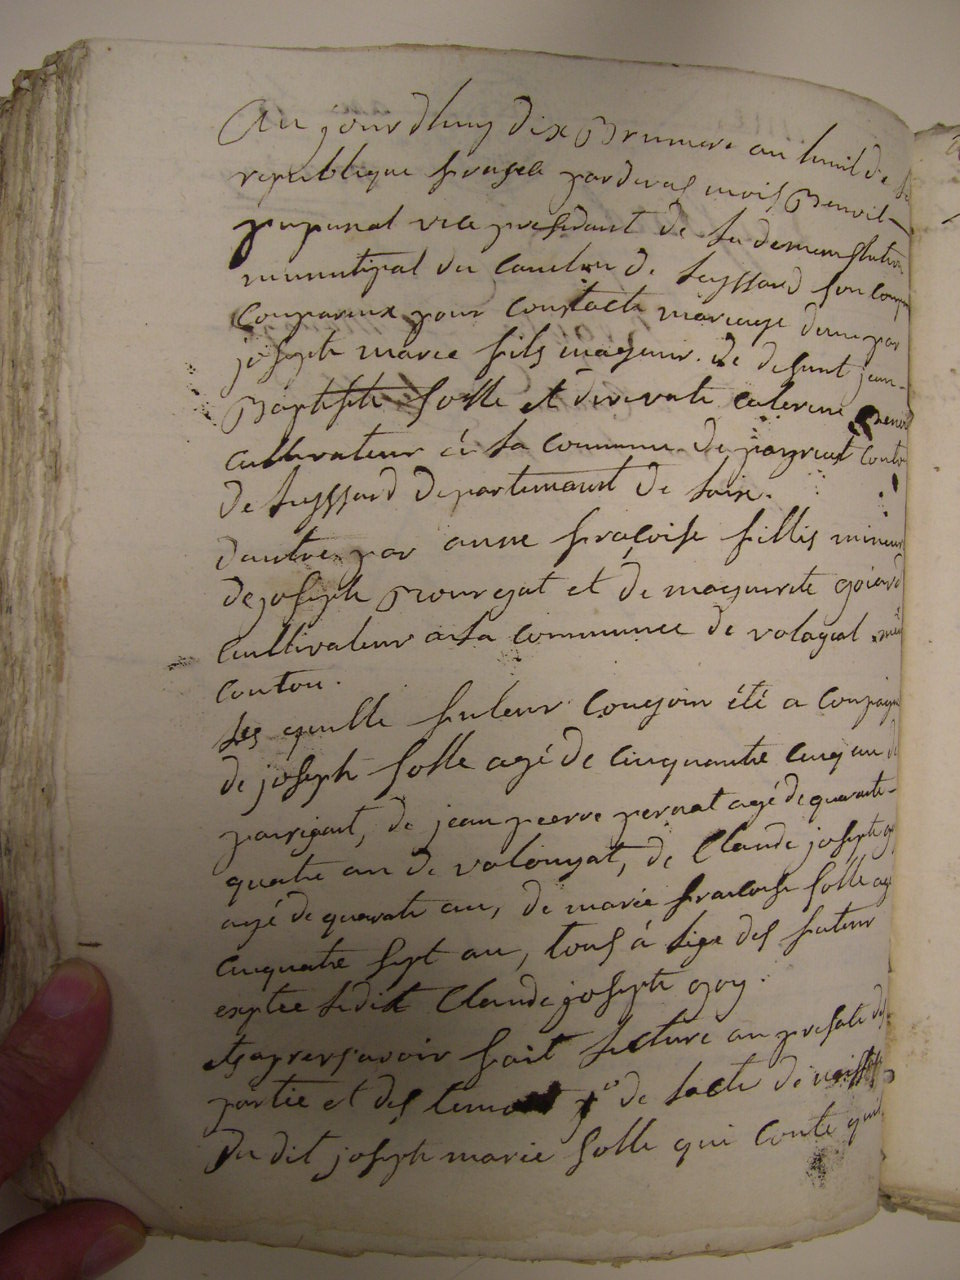 Au jourdhuy dix Brumere an huuil de la
republique fransea pardevas mois Benoit
vice presidant de la demenistration
munitipal du canton de
Comparux pour contacte mariage dune par
joseph marie fils mageur de defunt jean-
Baptiste folle et vivente caterine
cultivateur à la commune de peyriat
de departemant de lain.
dautre par anne fraçoise fillis mineur
de joseph et de maguerite
cultivateur a la commune de volognat
conton.
Les quelle futeur congoin été a conpagné
de joseph folle agé de cinquante cinq an de
de jean pierre pernat agé de quarante-
quatre an de valongat, de Claude joseph
agé de quarante an, de marie francoise folle agé
cinquante sept an, tous à lige des futeur
exptée ledit Claude joseph goy.
et apres avoir fait lecture an presate des
partie et des temo 1° de lacte de
du dit joseph marie folle qui conte quil